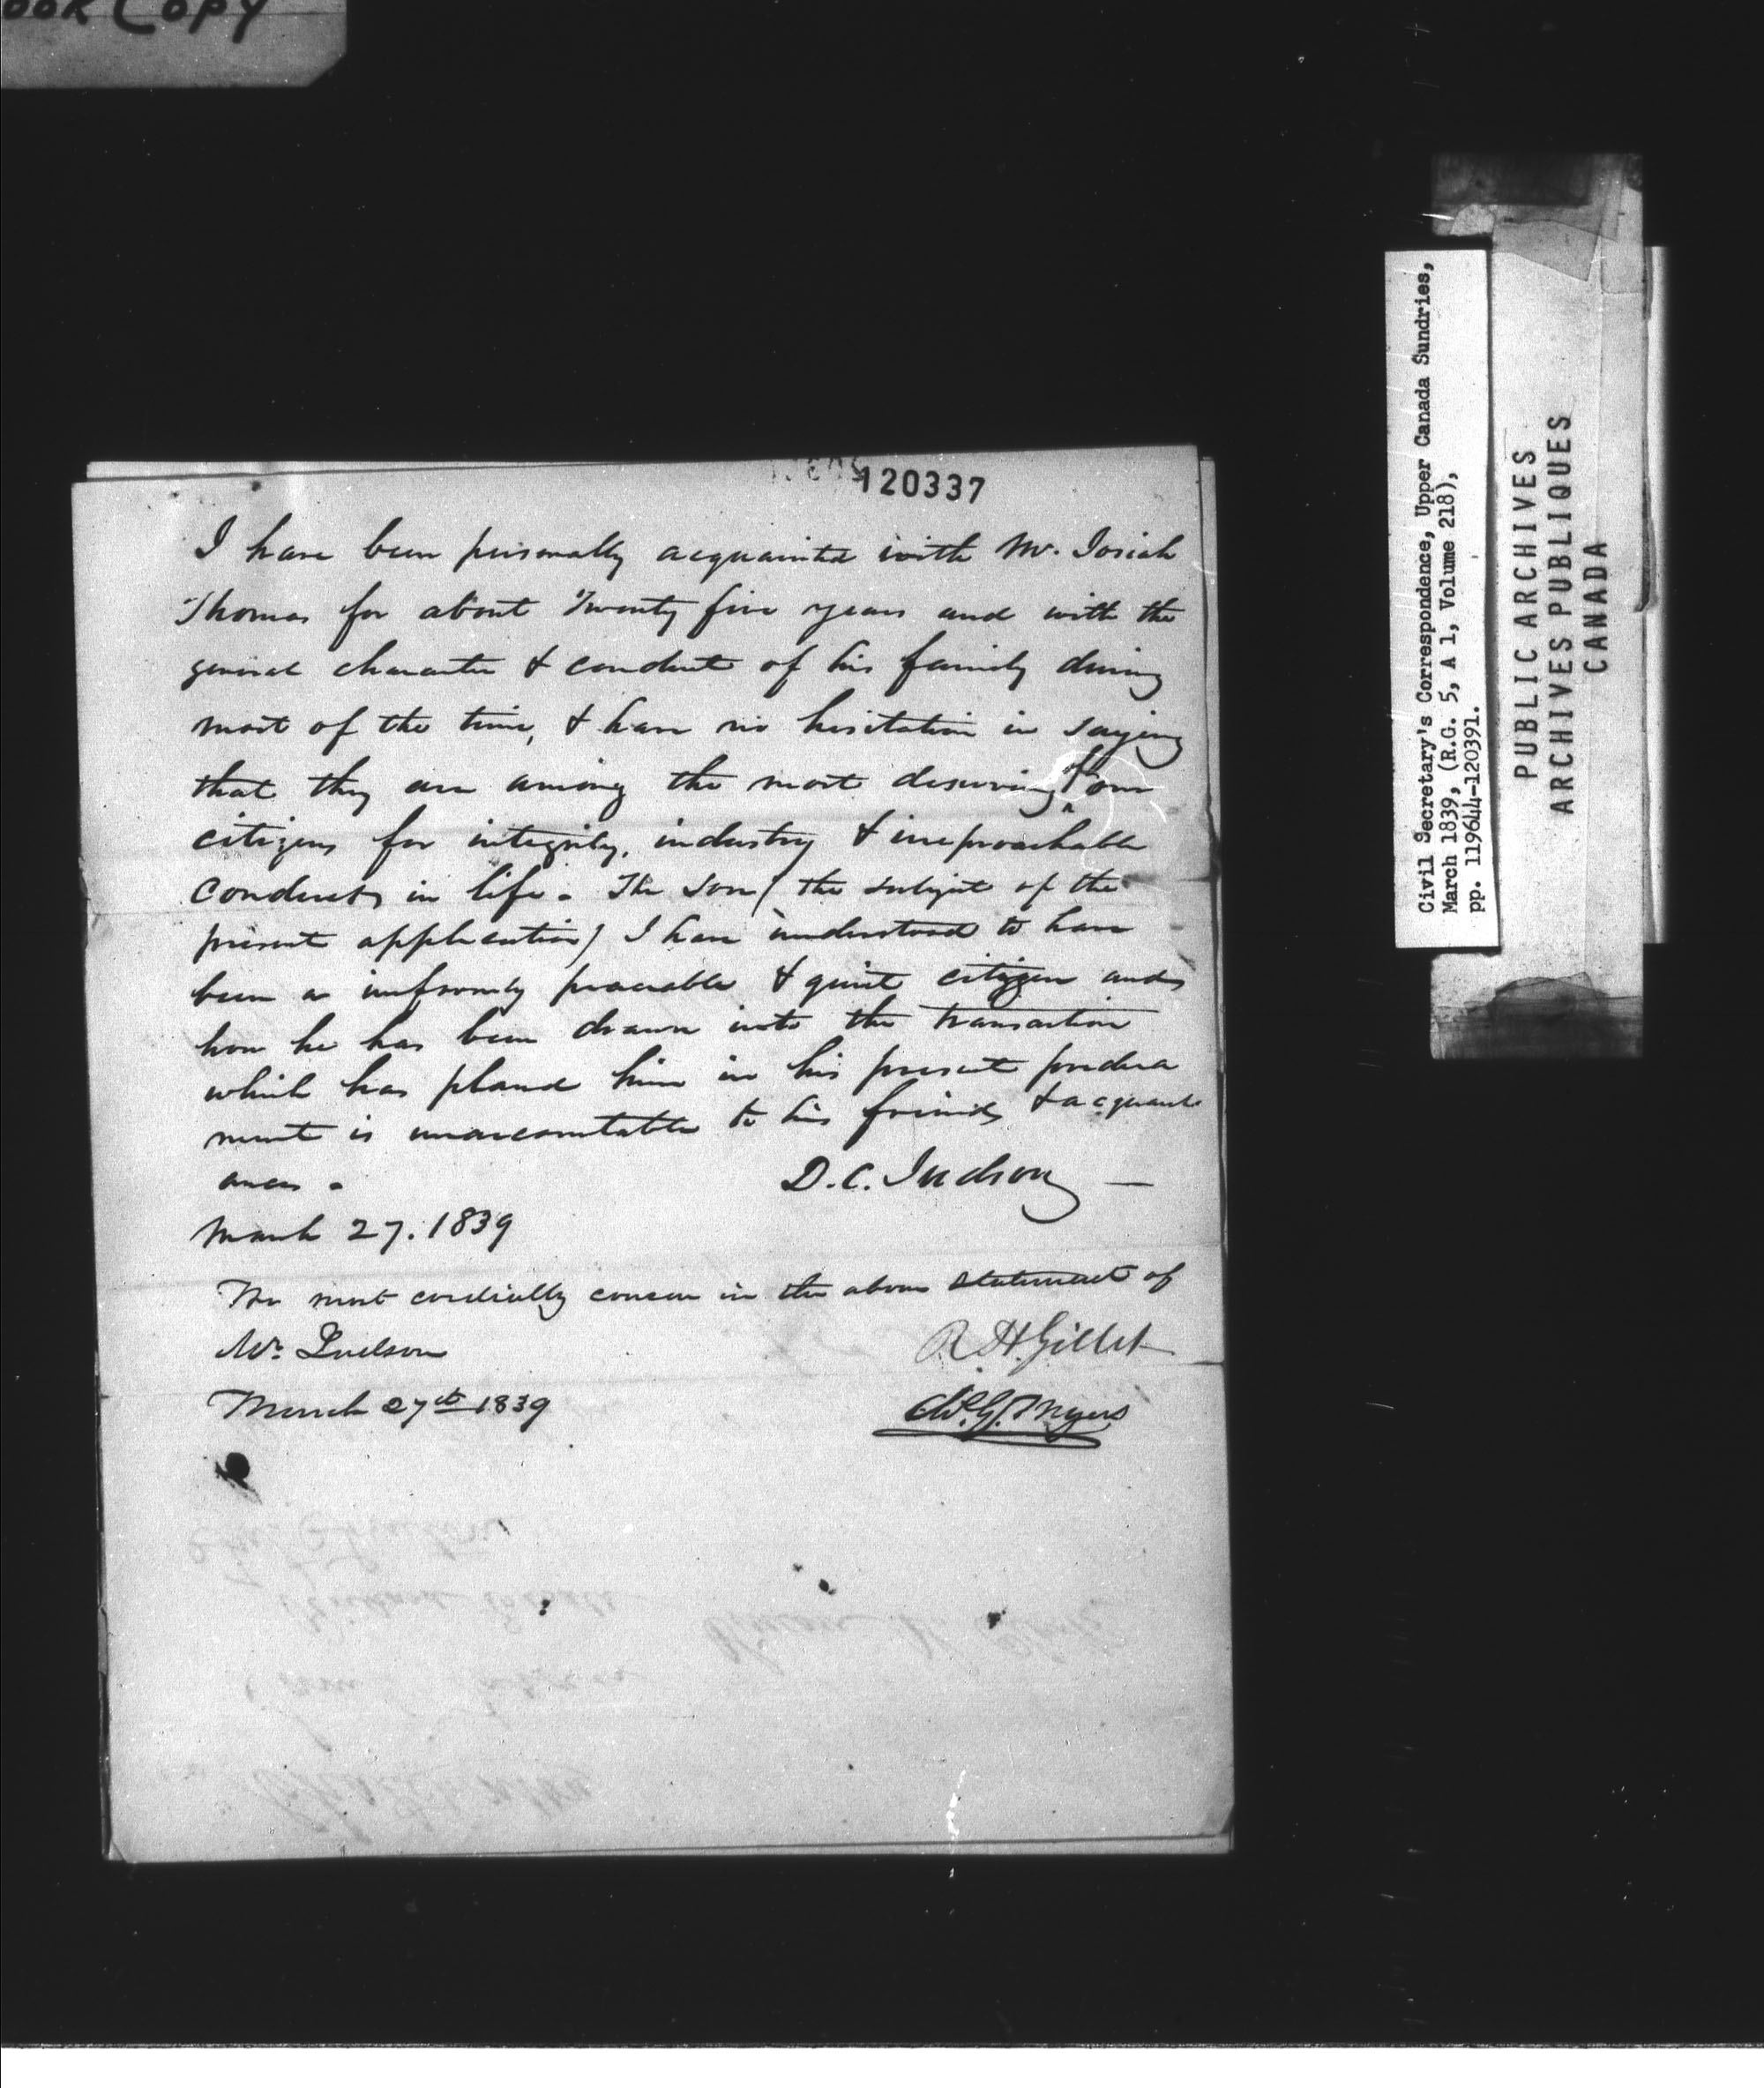 OOK COPY
120337
I have been personally acquainted with Mr. Josiah
Thomas for about Twenty five years and with the
general character & conduct of his family during
most of the time, & have no hesitation in saying
that they are among the most deserving of our
citizens for integrity, industry & irreproachable
conduct in life. The son (the subject of the
present application) I have understood to have
been a uniformly peaceable & quiet citizen and
how he has been drawn into the transaction
which has placed him in his present predica
ment is unaccountable to his friends & acquaint
ances.
D. C. Judson
March 27. 1839
We most cordially concur in the above statement of
Mr. Judson
R. H. Gillet
March 27th 1839
Myers
Civil Secretary's Correspondence, Upper Canada Sundries,
March 1839, (R.G. 5, A 1, Volume 218),
pp. 119644-120391.
PUBLIC ARCHIVES
ARCHIVES PUBLIQUES
CANADA